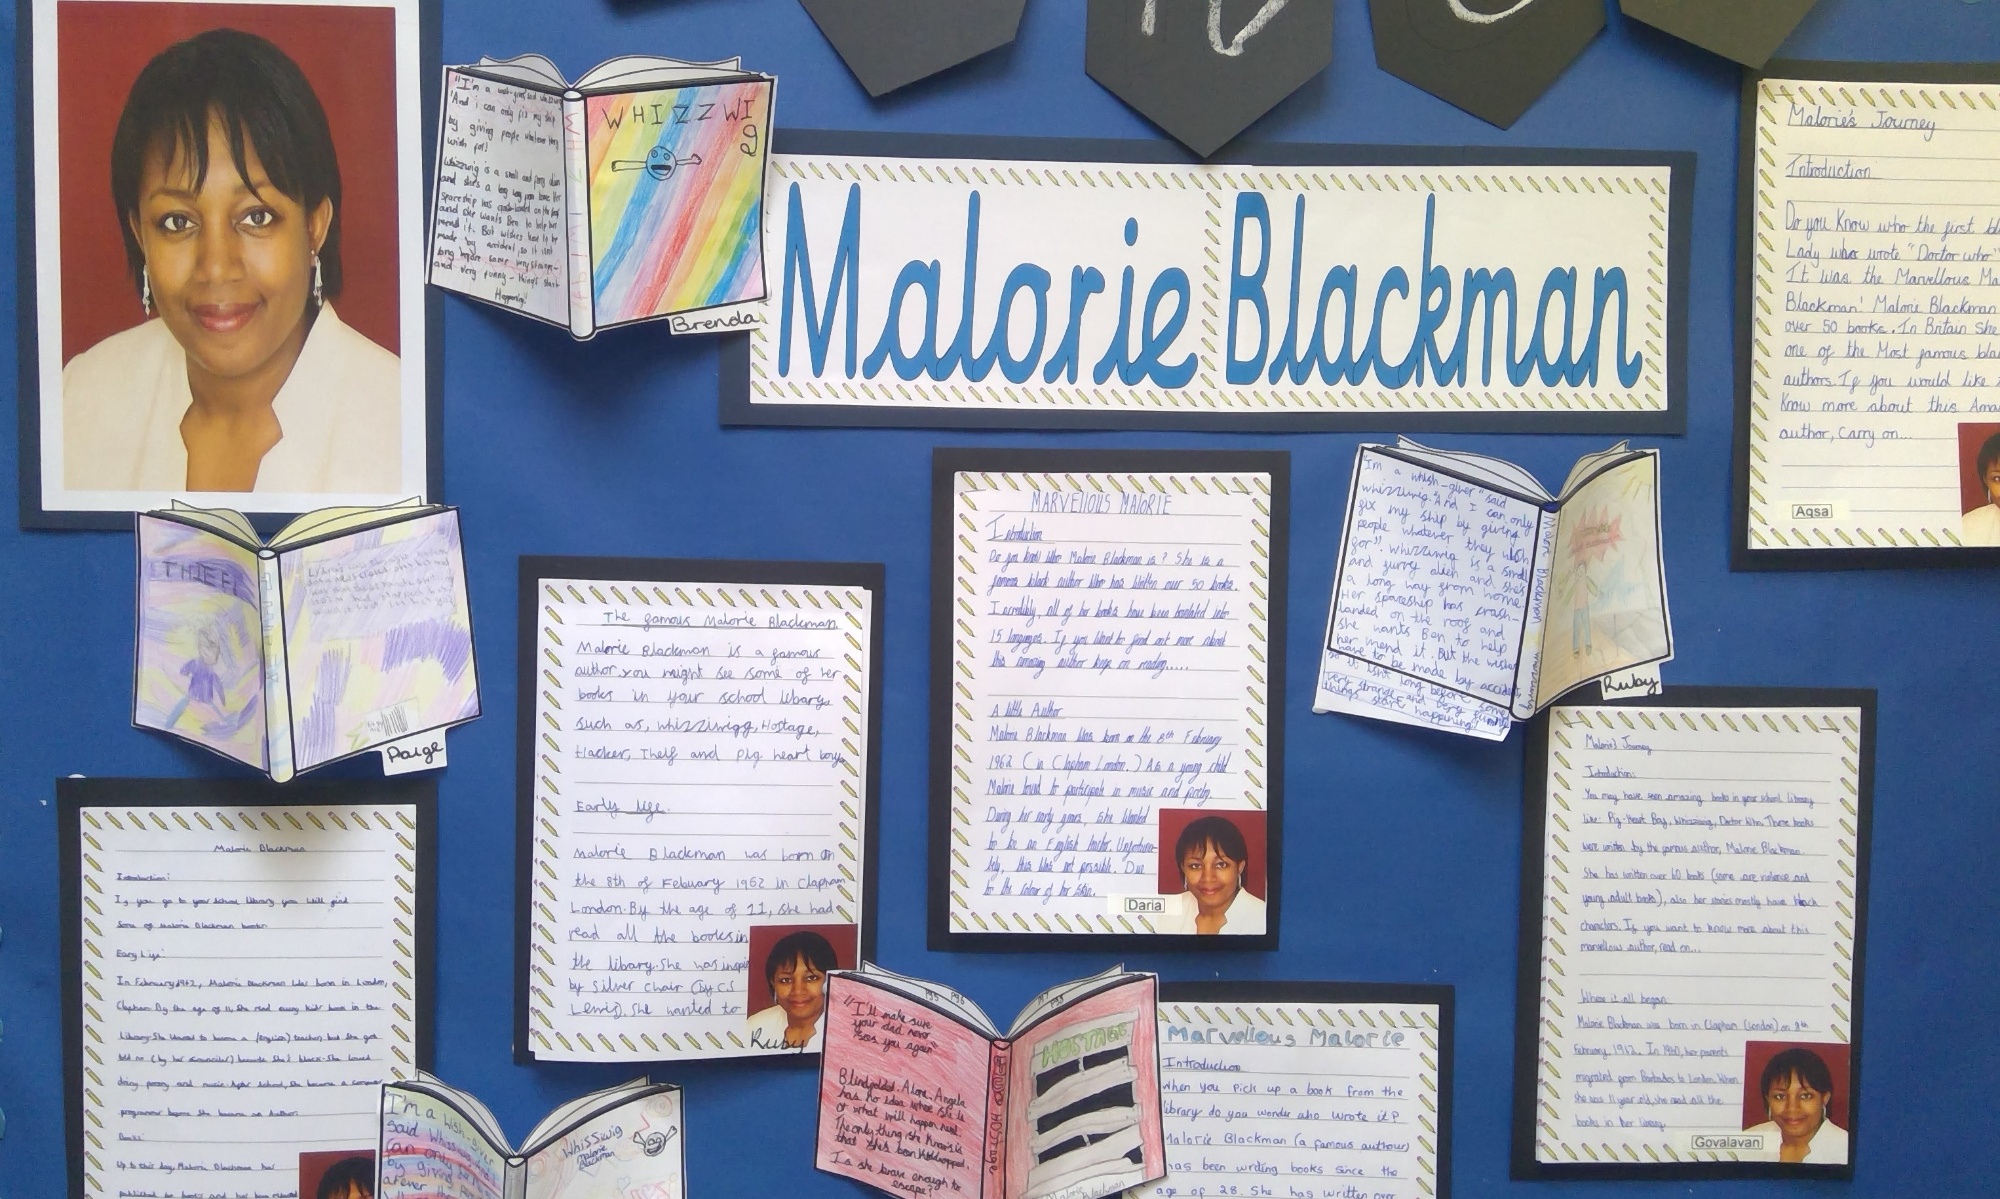 "I'm a wish-giver said whizzwig
'And i can only fix my ship
by giving people whatever they
wish for!
Whizzwig is a small and furry alien
and she's a long way from home. Her
Spaceship has crash-landed on the roof
and she wants Ben to help her
mend it. But wishes have to be
made by accident, so it isnt
long before some very strange-
and very funny - things start
Happening!
WHIZZWIg
Brenda
Malorie Blackman
Malorie's Journey
Introduction
Do you know who the first
Lady who wrote "Doctor who"
It was the Marvellous
Blackman! Malorie Blackman
over 50 books. In Britain she
one of the Most famous
authors. If you would like
Know more about this
author, carry on...
Aqsa
THIEF!
Paige
The famous Malorie Blackman
Malorie Blackman is a famous
author you might see some of her
books in your school libary
such as, whizziwigg, Hostage,
Hacker, Theif and Pig heart boy
Early life.
Malorie Blackman was born on
the 8th of Febuary 1962 in Clapham
London. By the age of 11, she had
read all the books in
the library. She was
by Silver chair (by CS
Lewis). She wanted to
Ruby
MARVELLOUS MALORIE
Introduction
Do you know who Malorie Blackman is? She is a
famous black author who has written over 50 books.
Incredibly, all of her books have been translated into
15 languages. If you want to find out more about
this amazing author keep on reading.....
A little Author
Malorie Blackman was born on the 8th February
1962 (in Clapham London.) As a young child
Malorie loved to participate in music and poetry.
During her early years, she wanted
to be an English teacher. Unfortuna-
tely, this was not possible. Due
to the colour of her skin.
Daria
"Im a whish-giver" said
whizziwig. "And I can only
fix my ship by giving
people whatever they wish
for". Whizziwig is a small
and furry alien and she's
a long way from home.
Her spaceship has crash-
landed on the roof and
she wants Ben to help
her mend it. But the wishes
have to be made by accident,
so it isnt long before some
very strange and very funny
things start happening!
Ruby
Malorie's Journey
Introduction:
You may have seen amazing books in your school library
like: Pig-Heart Boy, Whizziwig, Doctor Who. These books
were written by the famous author, Malorie Blackman.
She has written over 60 books (some are violence and
young adult books), also her stories mostly have black
characters. If you want to know more about this
marvellous author, read on...
Where it all began
Malorie Blackman was born in Clapham (London) on 8th
February, 1962. In 1960, her parents
migrated from Barbados to London. When
she was 11 year old, she read all the
books in her library.
Govalavan
Malorie Blackman
Introduction:
If you go to your school library you will find
some of Malorie Blackman books.
Early life:
In February 1962, Malorie Blackman was born in London,
Clapham. By the age of 11, she read every kids' book in the
library. She wanted to become a (English) teacher, but she got
told no (by her councilor) because she's black. She loved
doing poetry and music. After school, she became a
programmer before she became an Author.
Books:
Up to this day, Malorie Blackman has
I'm a wish-
said
can only
by giving
WhiSSwig
Malorie
Blackman
P95 P96
P97
P98
"I'll make sure
your dad never
sees you again"
Blindfolded. Alone. Angela
has no idea where she is
or what will happen next
The only thing she knows is
that she's been kidnapped.
Is she brave enough to
escape?
HOSTAGE
Malorie Blackman
Marvellous Malorie
Introduction
When you pick up a book from the
library do you wonder who wrote it?
Malorie Blackman (a famous authour)
has been writing books since the
age of 28. She has written over